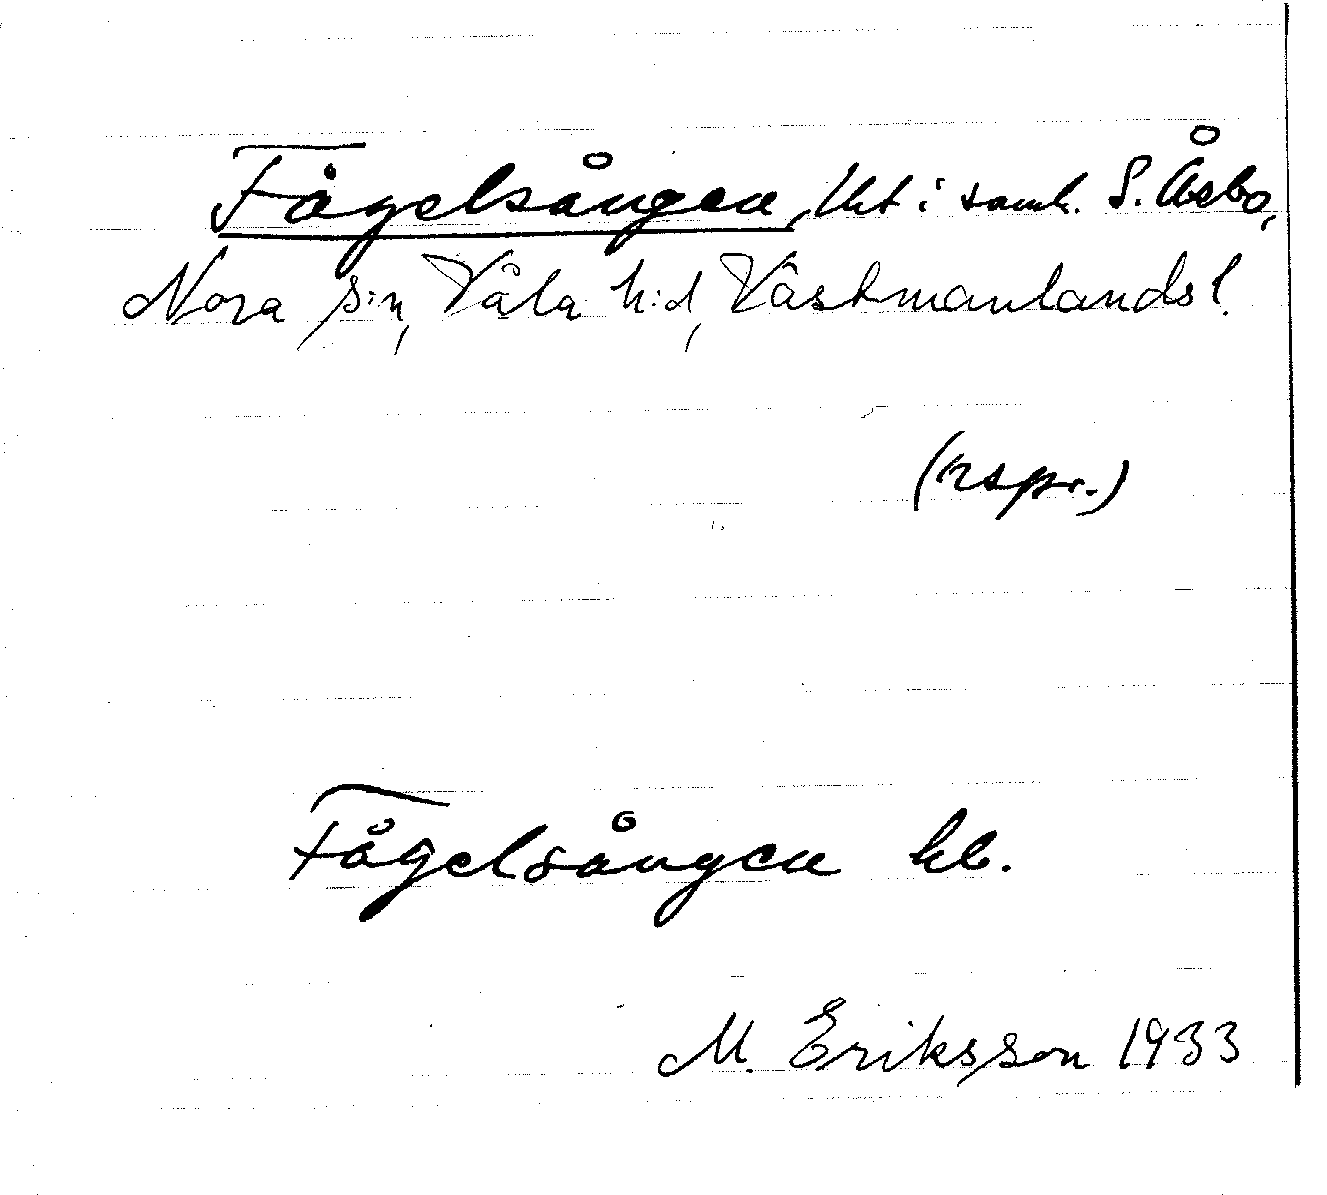 Fågelsången, lht i samh. S. Åsbo,
Nora s:n, Våla h:d, Västmanlands l.
(rspr.)
Fågelsången hb.
M. Eriksson 1933